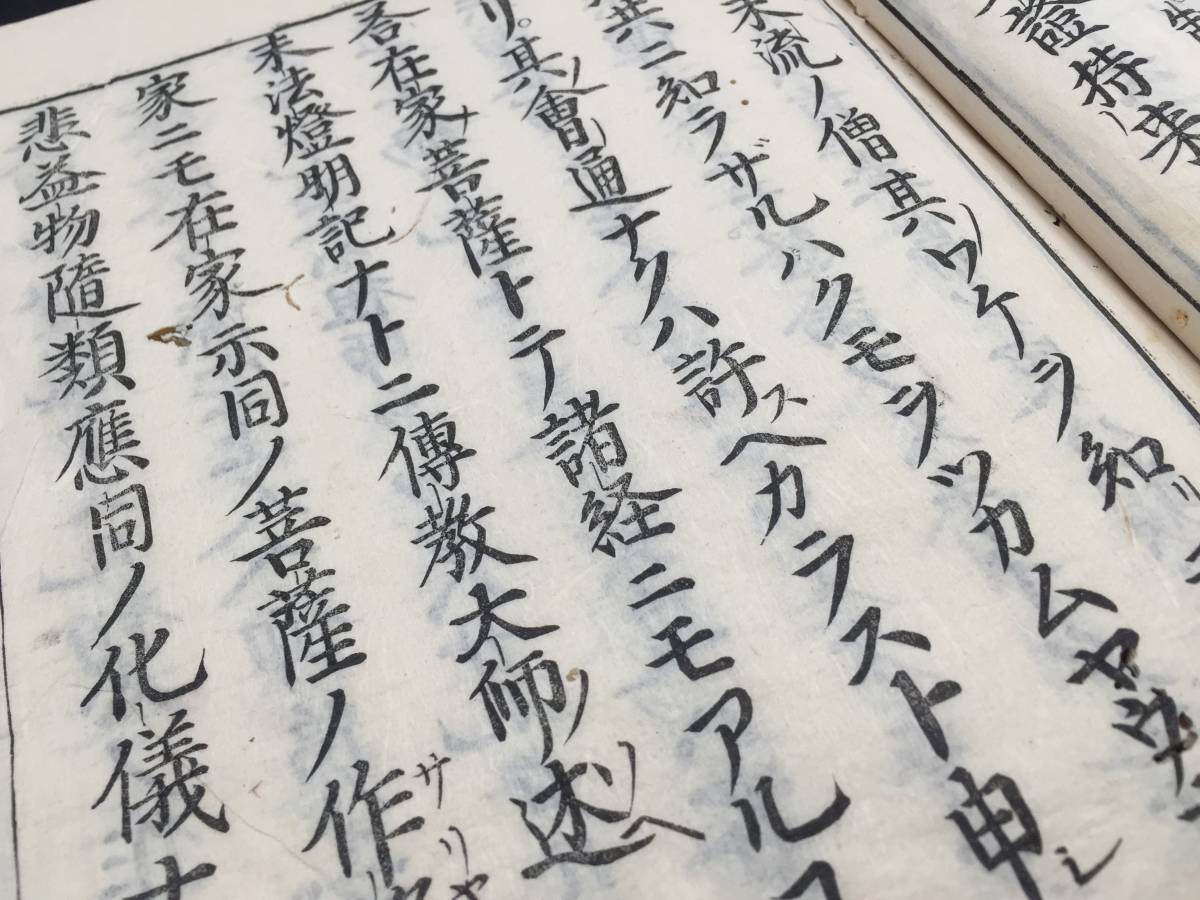 證持来
末流ノ僧其ワケヲ知リ
共ニ知ラザルハクモヲツカムヤウ
リ。其ノ會通ナクハ許スヘカラスト申シ
各在家ナ菩薩トテ諸経ニモアル
末法燈明記ナトニ傳教大師ノ述ヘ
家ニモ在家示同ノ菩薩ノ作
悲益物随類應同ノ化儀ナ